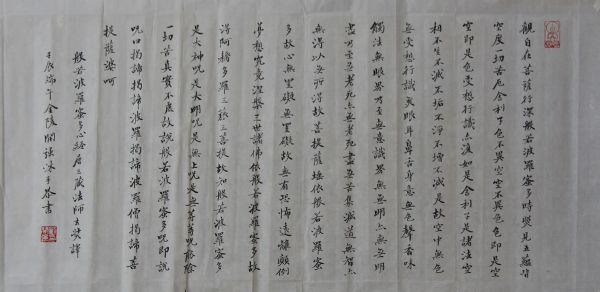 觀自在菩薩行深般若波羅蜜多時照見五蘊皆
空度一切苦厄舍利子色不異空空不異色色即是空
空即是色受想行識亦復如是舍利子是諸法空
相不生不滅不垢不淨不增不減是故空中無色
無受想行識無眼耳鼻舌身意無色聲香味
觸法無眼界乃至無意識界無無明亦無無明
盡乃至無老死亦無老死盡無苦集滅道無智亦
無得以無所得故菩提薩埵依般若波羅蜜
多故心無罣礙無罣礙故無有恐怖遠離顛倒
夢想究竟涅槃三世諸佛依般若波羅蜜多故
得阿耨多羅三藐三菩提故知般若波羅蜜多
是大神咒是大明咒是無上咒是無等等咒能除
一切苦真實不虛故說般若波羅蜜多咒即說
咒曰揭諦揭諦波羅揭諦波羅僧揭諦菩
提薩婆呵
般若波羅蜜多心經唐三藏法師玄奘譯
壬辰端午金陵恭書